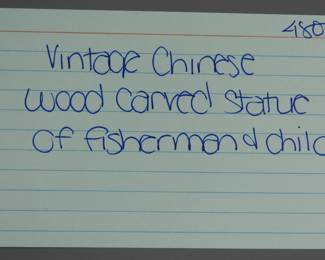 480
Vintage Chinese
wood carved statue
of fishermen & child